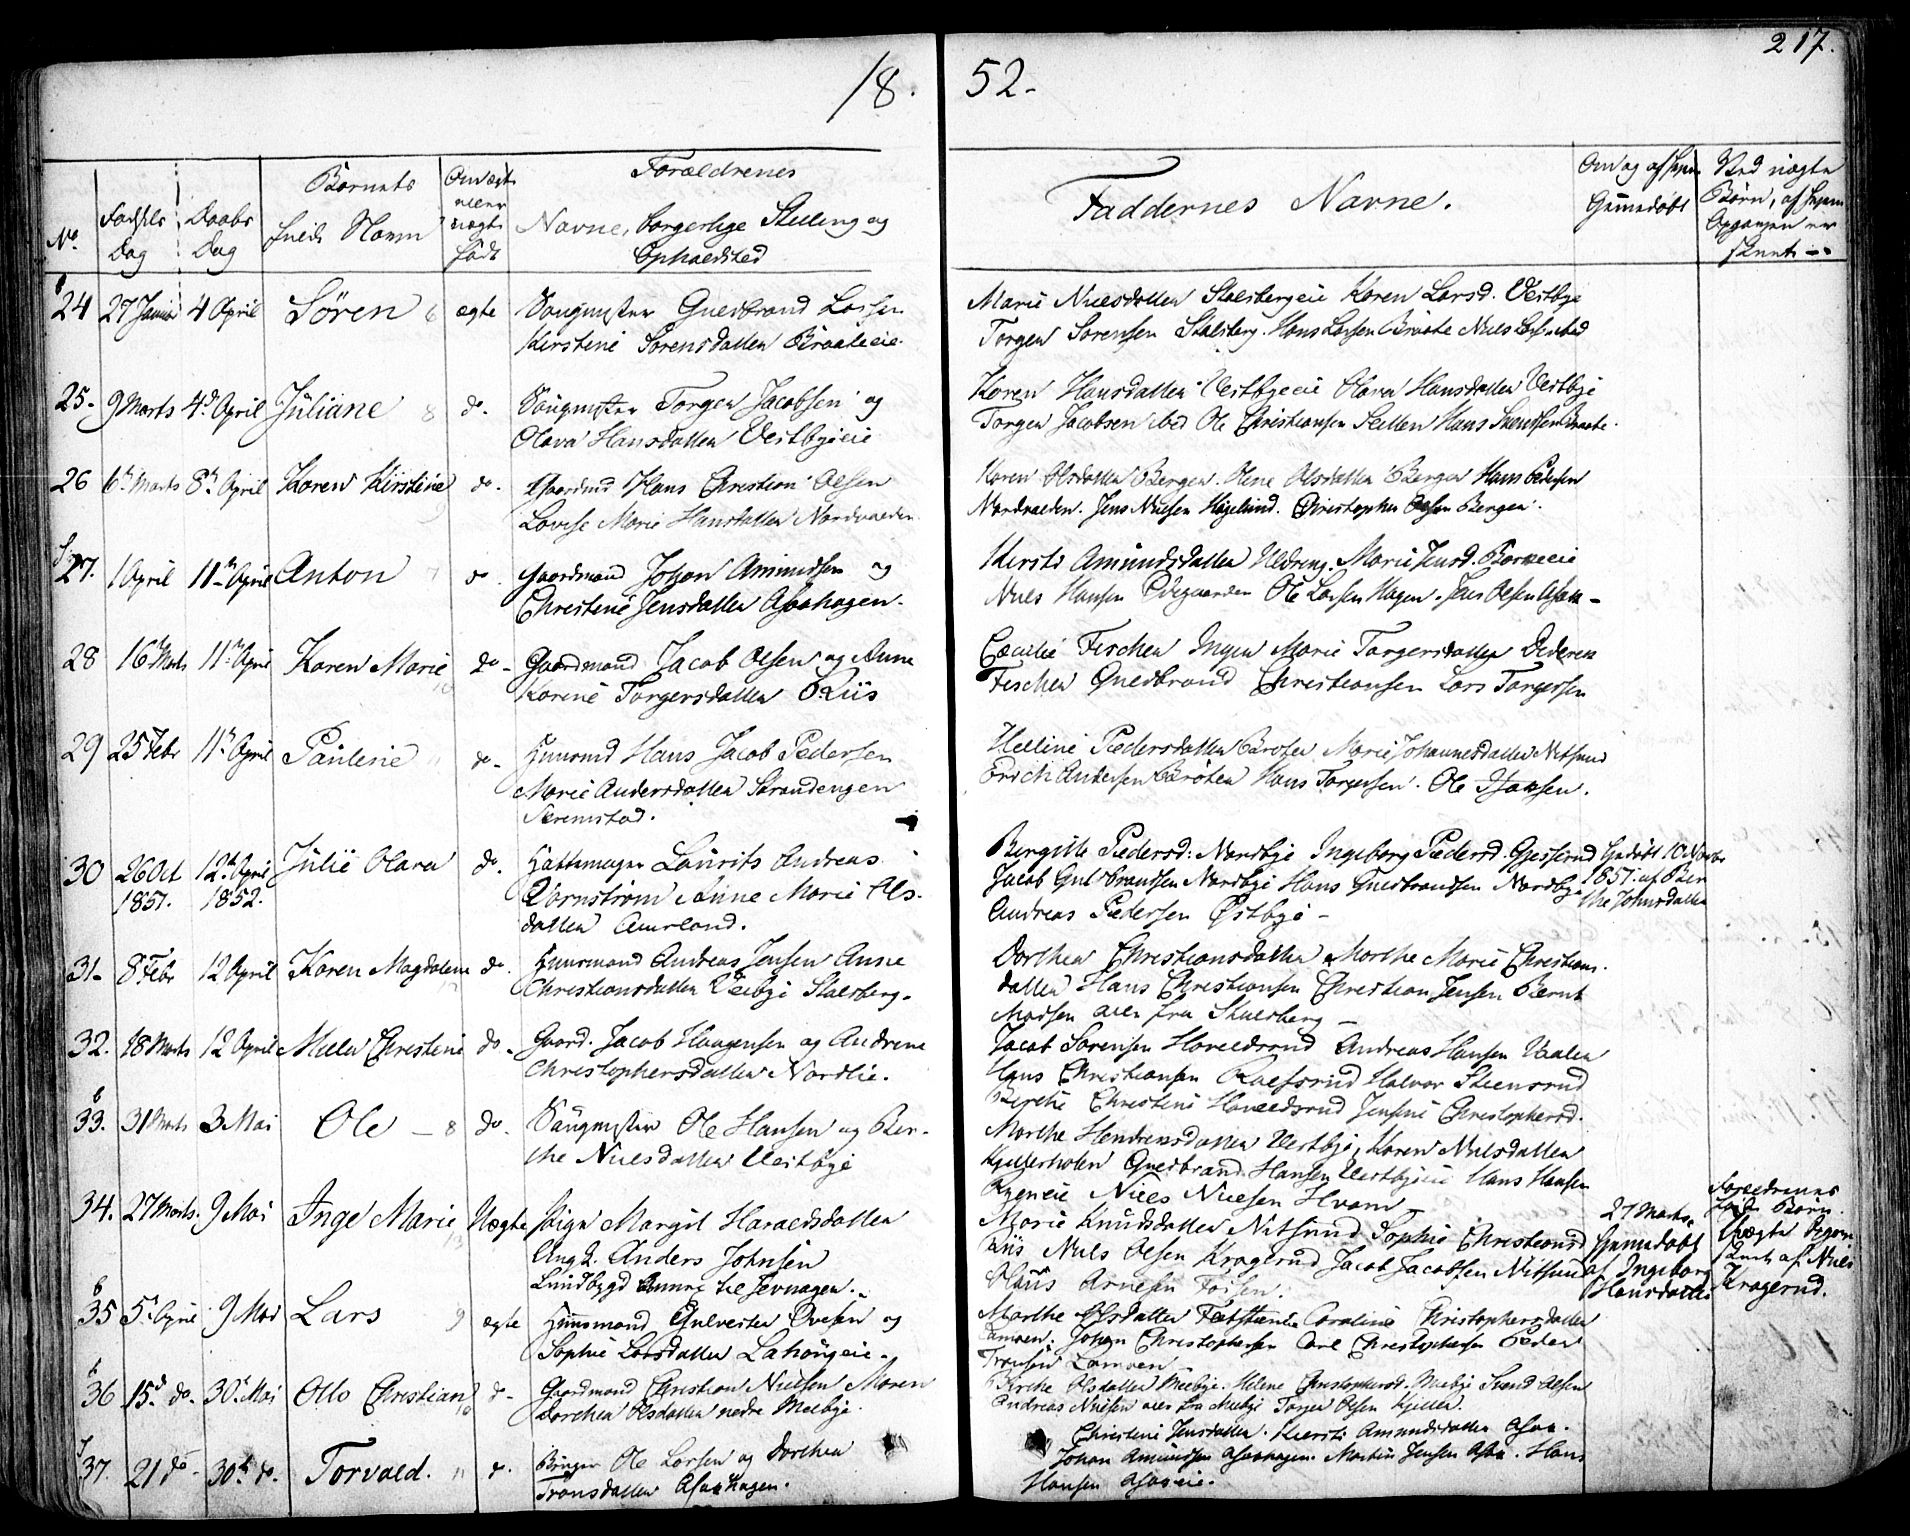 217.
18. 52.
No.
Fødsels Dag
Daabs Dag
Barnets fulde Navn
Om ægte eller uægte født
Forældrenes Navne, borgerlige Stilling og Opholdsted
Faddernes Navne.
Om og af hvem Hjemmedøbt
Ved uægte Børn, af hvem Opgaven er skeet
24 27 Januar 4 April Søren 6 ægte Saugmester Guldbrand Larsen
Kirstine Sørensdatter Braateeie.
Marie Nielsdatter Stalsbergeie Karen Larsd. Vestbye
Torger Sørensen Stalsberg. Hans Larsen Braate Niels Larsen ibid
25. 9 Marts 4d April Juliane 8 do. Saugmester Torger Jacobsen og
Olava Hansdatter Vestbyeie
Karen Hansdatter Vestbyeeie Olava Hansdatter Vestbye
Torger Jacobsen ibid Ole Christiansen Hans Svendsen Braate.
26 6te Marts 8de April Karen Kirstine do. Gaardmd Hans Christian Olsen
Lovise Marie Hansdatter Nordraaden
Karen Olsdatter Berger. Oline Olsdatter Berger Hans Pedersen
Nordraaden. Jens Nielsen Hagelund. Christopher Olsen Berger.
27. 1 April 11te April Anton 7 do. Gaardmand Johan Amundsen og
Christine Jensdatter Asaahagen.
Kirsti Amundsdatter Marie Jensd.
Niels Hansen Ødegaarden Ole Larsen Hagen. Jens Olsen Asaa
28 16de Marts 11te April Karen Marie 10 do Gaardmand Jacob Olsen og Anne
Karine Torgersdatter Riis
Cæcilie Fischer Inger Marie Torgersdatter Diderik
Fischer Guldbrand Christiansen Lars Torgersen
29 25 Febr 11te April Pauline 11 do Huusmd Hans Jacob Pedersen
Marie Andersdatter Strandengen
Strømstad.
Helline Pedersdatter Braaten Marie Johannesdatter Nitsund
Erich Andersen Braaten Hans Torgersen. Ole Hansen.
30 26 Oct 12te April Julie Olava do. Hattemager Laurits Andreas
1851. 1852. Bornstrøm Anne Marie Ols-
datter Aurland.
Bergitte Pedersd: Nordbye Ingeborg Pedersd. Gjesserud Hjdøbt 10 Novbr
Jacob Gulbrandsen Nordbye Hans Guldbrandsen Nordbye 1851. af Ber
Andreas Pedersen Østbye - the Johnsdatter
31. 8 Febr 12 April Karen Magdalene 12 do. Huusmand Andreas Jensen Anne
Christiansdatter Veibye Stalsberg.
Dorthea Christiansdatter Marthe Marie Christians-
datter Hans Christiansen Christian Jensen Bernt
Madsen alle fra Skulsberg -
32. 18 Marts 12 April Mille Christine do. Gaard. Jacob Haagensen og Andrine
Christophersdatter Nordlie.
Jacob Sørensen Holledsrud Andreas Hansen Vaalen
Hans Christiansen Halvor Steensrud
Berthe Christine Jensine Christophersd.
33. 31 Marts 3 Mai Ole - 8 do. Saugmester Ole Hansen og Ber-
the Nielsdatter Vestbye
Marthe Hendrensdatter Vestbye, Karen Nielsdatter
Kjellerholen Guldbrand Hansen Vestbyeie Hans Hansen
Niels Nielsen Hvam
34. 27 Marts. 9 Mai Inge Marie 13 Uægte Pigen Margit Haraldsdatter
Ung. Anders Johnsen
Marie Knudsdatter Nitsund Sophie Christiansd
Riis Niels Olsen Kragerud Jacob Jacobsen Nitsund
Arnesen
27 Marts Hjemmedøbt af Ingeborg Hansdatter
Forældrenes Uægte skeet af Niels Kragerud.
35 5te April 9 Mai Lars 9 ægte Huusmand Gulvester Ovesen og
Sophie Larsdatter Lahaugeie.
Marthe Olsdatter Caroline Christophersdatter
Lamoen. Johan Christophersen Carl Christophersen Peder
Lamoen
36 15de do. 30te Mai Otto Christian 10 do Gaardmand Christian Nielsen Maren
Dorthea Olsdatter nedre Meebye.
Berthe Olsdatter Meebye. Helene Christophersd. Meebye Svend Olsen
Andreas Nielsen alle fra Meebye Torger Olsen
37. 21 do 30te do. Torvald. 11 do. Ole Larsen og Dorthea
Tronsdatter Asaahagen.
Christine Jensdatter. Kiersti Amundsdatter Asaa.
Johan Amundsen Asaahagen. Martin Jensen Asaa. Hans
Hansen Asaaeie.